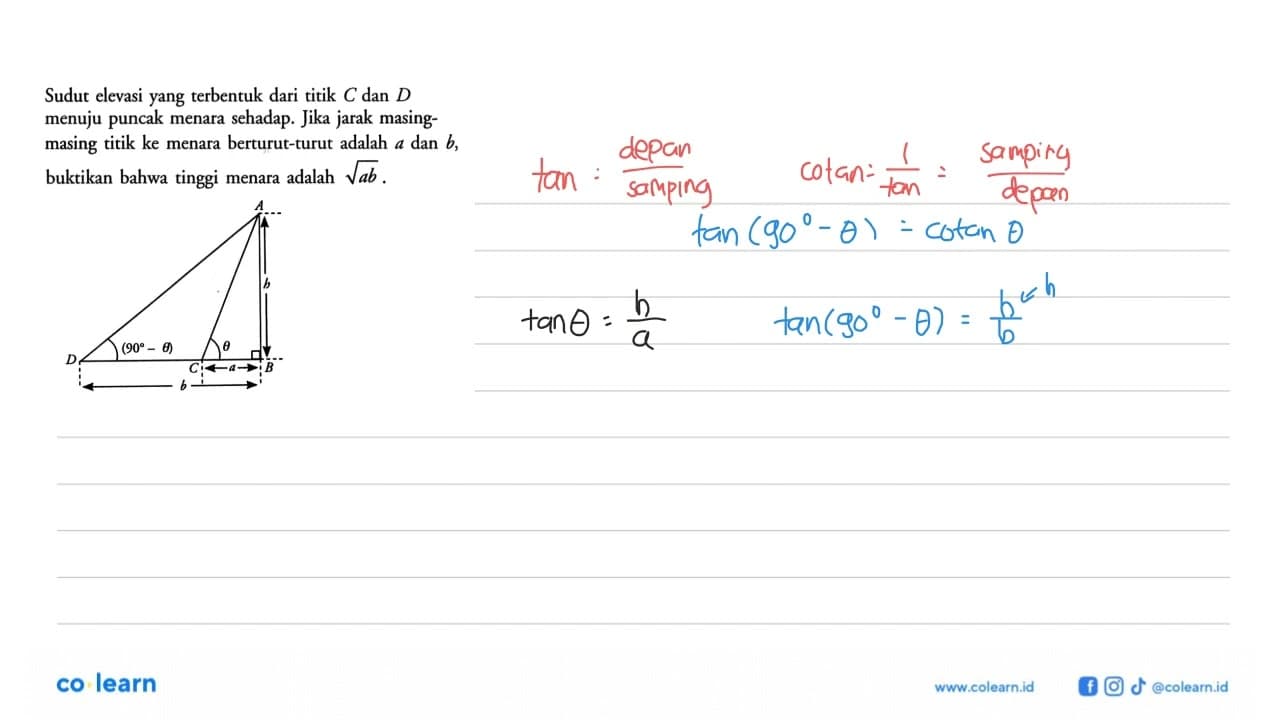 Sudut elevasi yang terbentuk dari titik C dan D
menuju puncak menara sehadap. Jika jarak masing-
masing titik ke menara berturut-turut adalah a dan b,
buktikan bahwa tinggi menara adalah √ab.
tan = depan/samping cotan = 1/tan = samping/depan
tan (90° - θ) = cotan θ
tan θ = h/a tan (90° - θ) = h/b ← h
A
h
D (90° - θ) θ
C a B
b
co·learn www.colearn.id @colearn.id